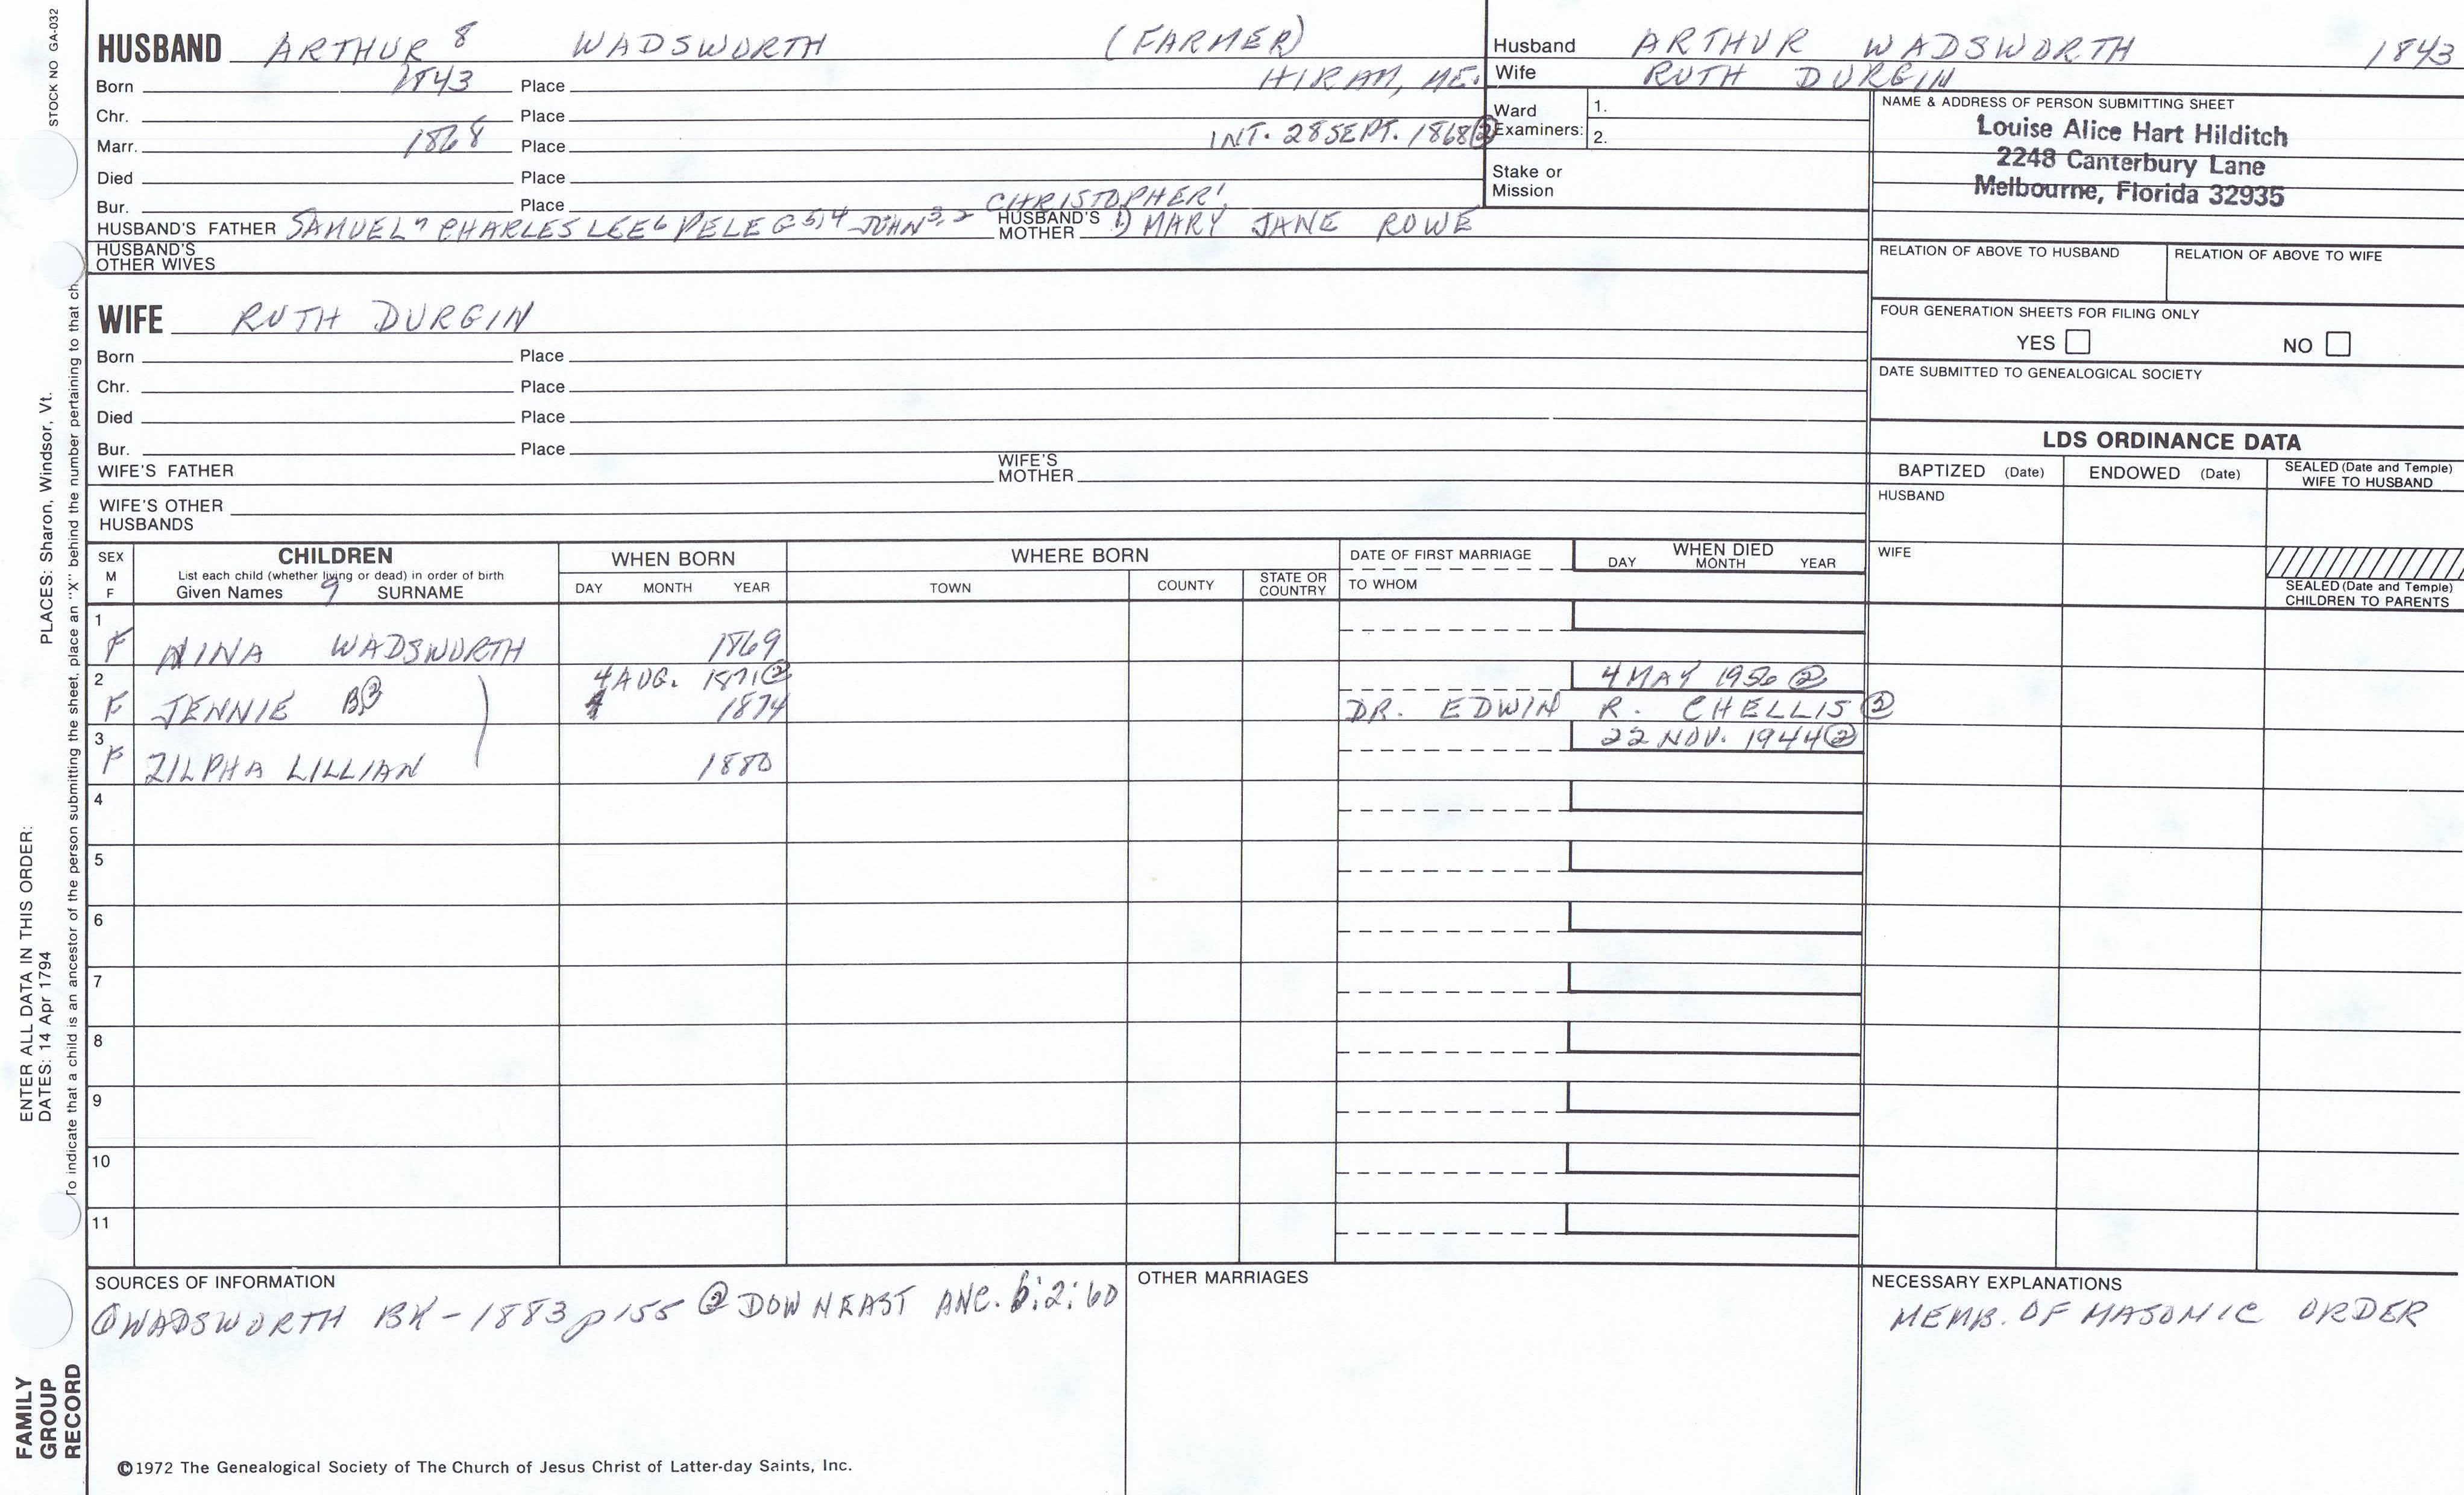 STOCK NO GA-032
HUSBAND ARTHUR 8 WADSWORTH (FARMER)
Born 1843 Place HIRAM, ME.
Chr. Place
Marr. 1868 Place INT. 28 SEPT. 1868 ②
Died Place
Bur. Place CHRISTOPHER1
HUSBAND'S FATHER SAMUEL7 CHARLES LEE6 PELEG5,4 JOHN3,2 HUSBAND'S MOTHER 1) MARY JANE ROWE
HUSBAND'S OTHER WIVES
Husband ARTHUR WADSWORTH 1843
Wife RUTH DURGIN
Ward Examiners: 1.
2.
Stake or Mission
NAME & ADDRESS OF PERSON SUBMITTING SHEET
Louise Alice Hart Hilditch
2248 Canterbury Lane
Melbourne, Florida 32935
RELATION OF ABOVE TO HUSBAND RELATION OF ABOVE TO WIFE
FOUR GENERATION SHEETS FOR FILING ONLY
YES NO
DATE SUBMITTED TO GENEALOGICAL SOCIETY
WIFE RUTH DURGIN
Born Place
Chr. Place
Died Place
Bur. Place
WIFE'S FATHER WIFE'S MOTHER
WIFE'S OTHER HUSBANDS
LDS ORDINANCE DATA
BAPTIZED (Date) ENDOWED (Date) SEALED (Date and Temple) WIFE TO HUSBAND
HUSBAND
WIFE
SEALED (Date and Temple) CHILDREN TO PARENTS
SEX M F CHILDREN WHEN BORN WHERE BORN DATE OF FIRST MARRIAGE WHEN DIED
List each child (whether living or dead) in order of birth
Given Names 9 SURNAME DAY MONTH YEAR TOWN COUNTY STATE OR COUNTRY TO WHOM DAY MONTH YEAR
1 F NINA WADSWORTH 1869
2 4 AUG. 1871 ② 4 MAY 1956 ②
F JENNIE B ② 1874 DR. EDWIN R. CHELLIS ②
3 22 NOV. 1944 ②
F ZILPHA LILLIAN 1880
4
5
6
7
8
9
10
11
SOURCES OF INFORMATION
① WADSWORTH BK - 1883 p 155 ② DOWNEAST ANC. 6:2:60
OTHER MARRIAGES
NECESSARY EXPLANATIONS
MEMB. OF MASONIC ORDER
©1972 The Genealogical Society of The Church of Jesus Christ of Latter-day Saints, Inc.
FAMILY
GROUP
RECORD
ENTER ALL DATA IN THIS ORDER:
DATES: 14 Apr 1794 PLACES: Sharon, Windsor, Vt.
To indicate that a child is an ancestor of the person submitting the sheet, place an "X" behind the number pertaining to that ch